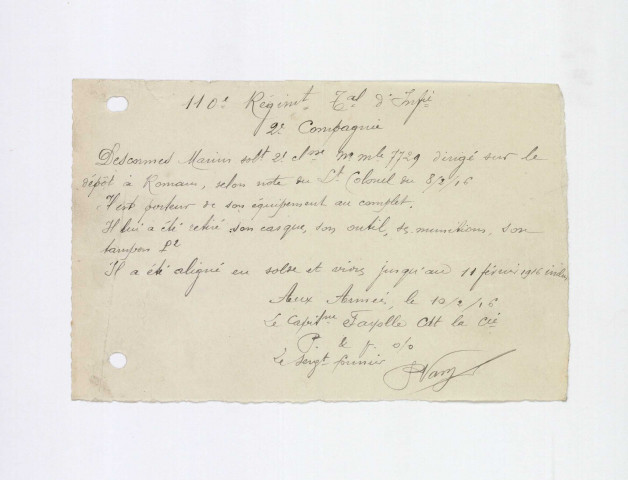 110e Régimt Tal d'Infie
2e Compagnie
Descommes Marius solt 2e classe No mle 7729 dirigé sur le
dépôt à Romans, selon note du Lt Colonel du 8/2/16
Il est porteur de son équipement au complet.
Il lui a été retiré son casque, son outil, ses munitions, son
tampon
Il a été aligné en solde et vivres jusqu'au 11 février 1916 inclus
Aux Armées, le 10/2/16
Le Capitne Fayolle Ct la Cie
P. le p. o/o
Le Sergt fourrier